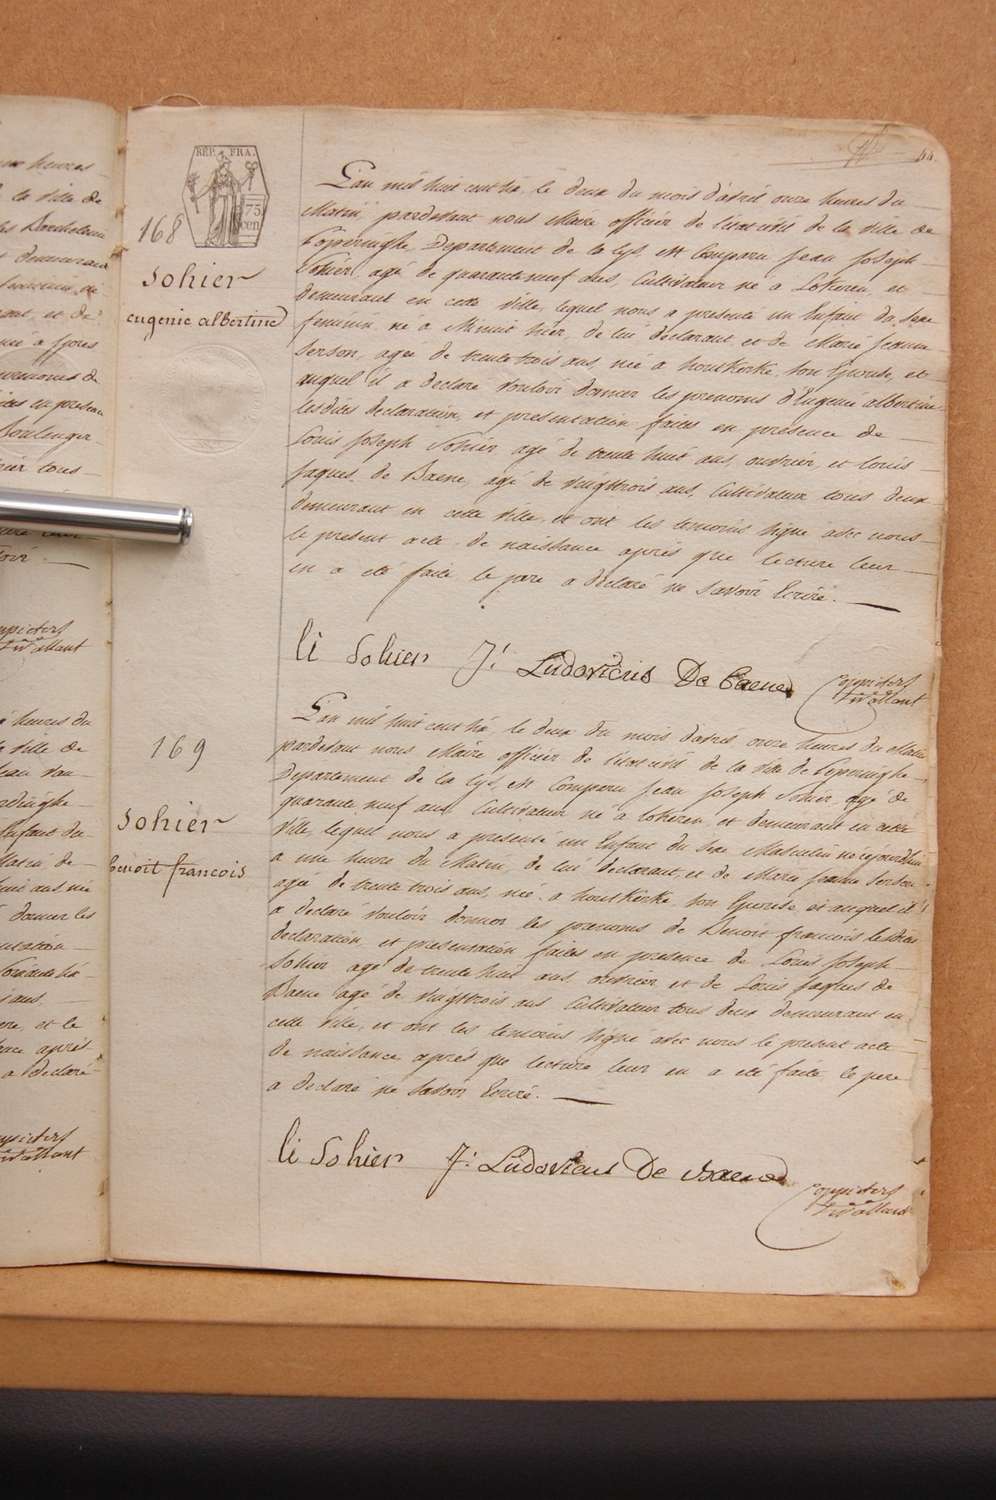 REP. FRA.
75
cen
168
Sohier
eugenie albertine
L'an mil huit cent six, le deux du mois d'avril onze heures du
Matin, pardevant nous Maire officier de l'etat civil de la ville de
Poperinghe, Departement de la Lys, est Comparu Jean Joseph
Sohier agé de quarante neuf ans, Cultivateur né à Lokeren, et
demeurant en cette Ville, lequel nous a presenté un Enfant du Sexe
feminin, né a Minuit hier, de lui declarant et de Marie Jeanne
Serson, agée de trente trois ans, née a houtKerke, son Epouse, et
auquel il a declaré vouloir donner les prenoms d'Eugenie albertine
lesdites declaration, et presentation faites en presence de
Louis Joseph Sohier agé de trente huit ans, ouvrier, et Louis
Jaques De Baene, agé de vingttrois ans, Cultivateur tous deux
demeurant en cette Ville, et ont les temoins signé avec nous
le present acte de naissance après que lecture leur
en a été faite le pere a declaré ne savoir Ecrire.
li Sohier J: Ludovicus De Baene
169
Sohier
benoit francois
L'an mil huit cent six, le deux du mois d'avril onze heures du Matin
pardevant nous Maire officier de l'etat civil de la Ville de Poperinghe
Departement de la Lys, est Comparu Jean Joseph Sohier, agé de
quarante neuf ans, Cultivateur né a Lokeren et demeurant en cette
Ville, lequel nous a presenté un Enfant du Sexe Masculin né cejourdhui
a une heure du Matin, de lui declarant, et de Marie Jeanne Serson
agée de trente trois ans, née a houtKerke, son Epouse, et auquel il
a declaré vouloir donner les prenoms de Benoit francois lesdites
declaration et presentation faites en presence de Louis Joseph
Sohier agé de trente huit ans, ouvrier et de Louis Jaques de
Baene agé de vingttrois ans Cultivateur tous deux demeurant en
cette Ville, et ont les temoins signé avec nous le present acte
de naissance après que lecture leur en a été faite le pere
a declaré ne savoir Ecrire.
li Sohier J: Ludovicus De Baene